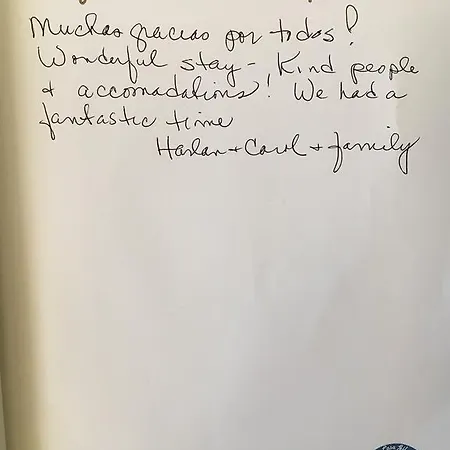 Muchas gracias por todos!
Wonderful stay - Kind people
+ accomodations! We had a
fantastic time
Harlan + Carol + family